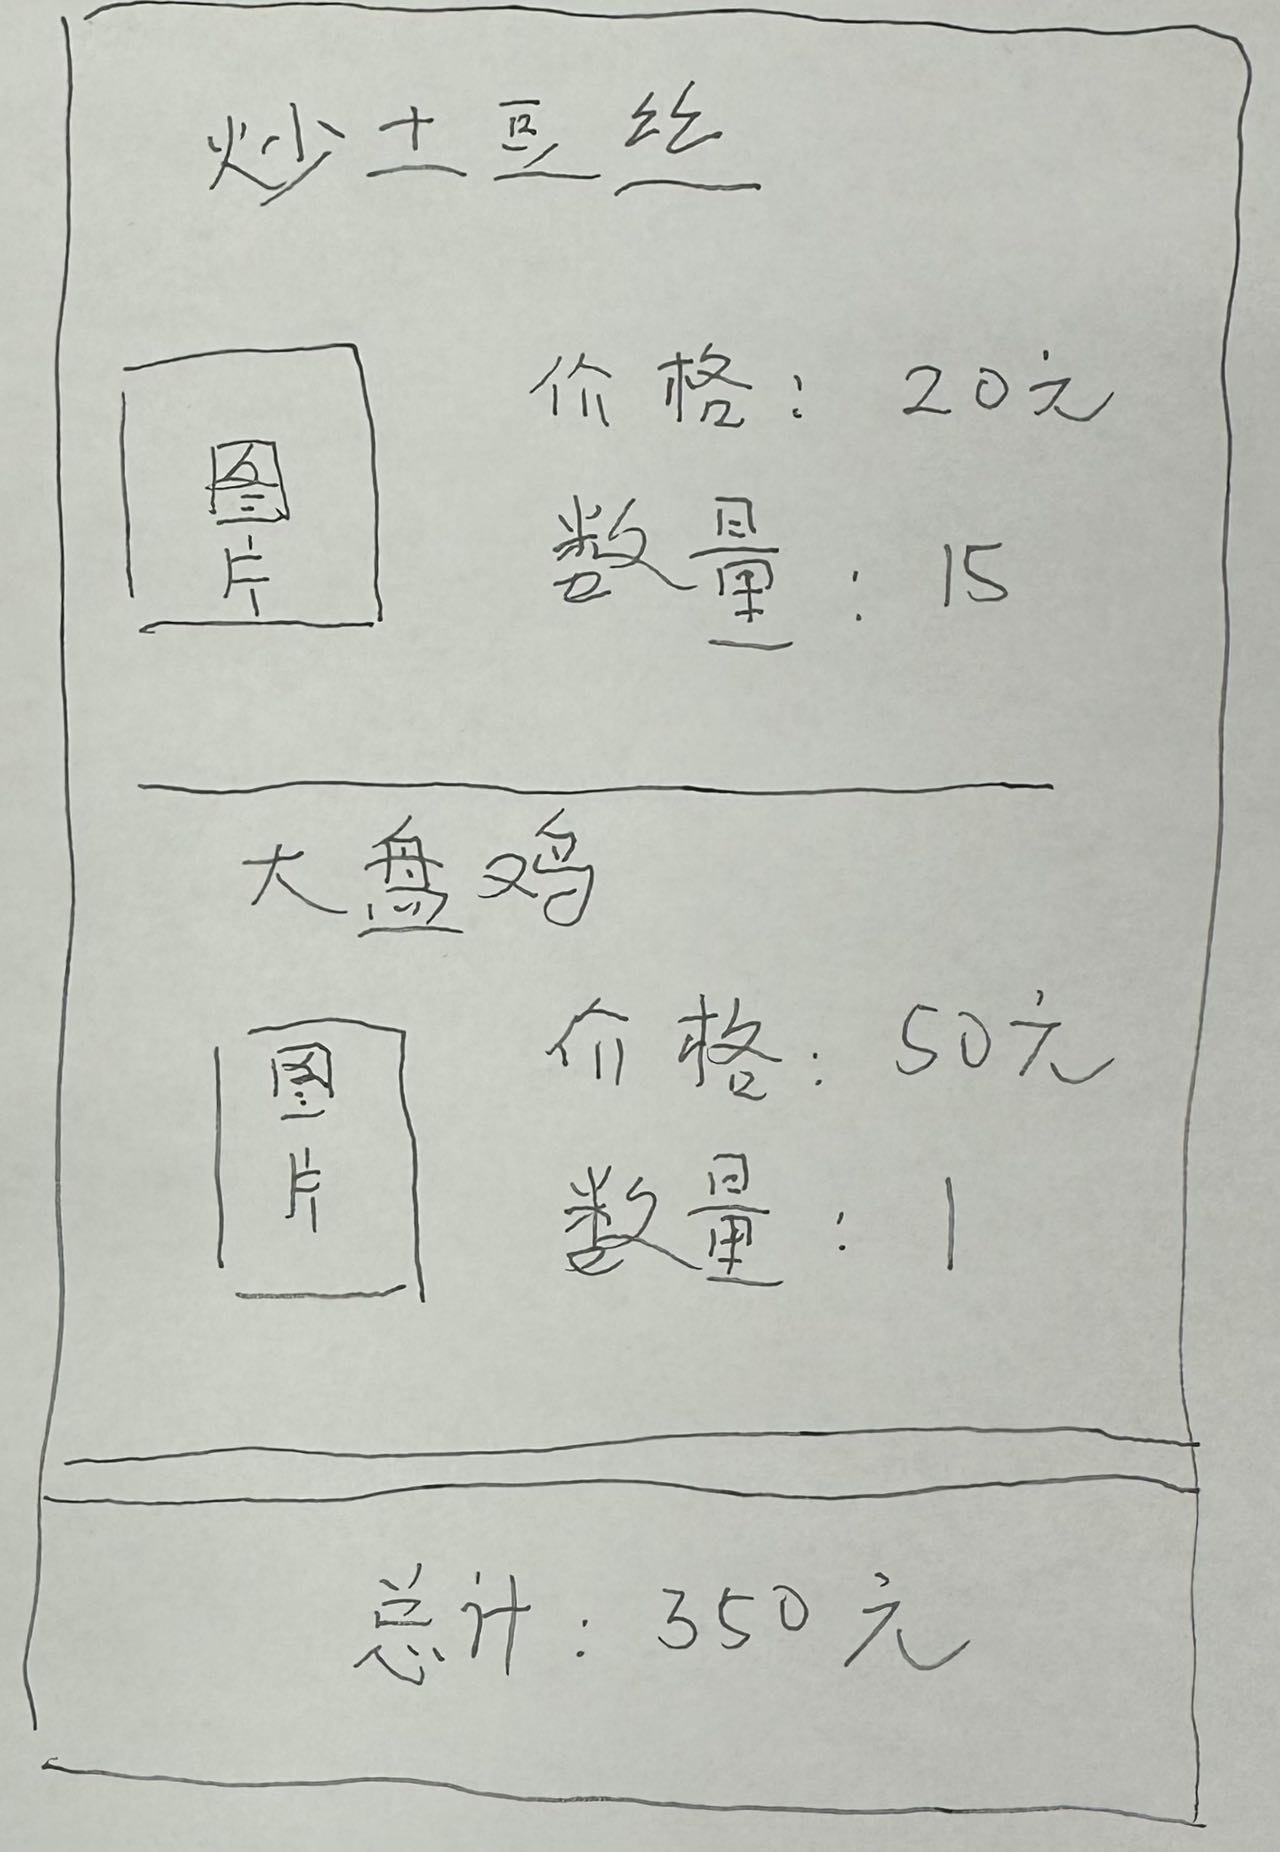 炒土豆丝
图片
价格：20元
数量：15
大盘鸡
图片
价格：50元
数量：1
总计：350元